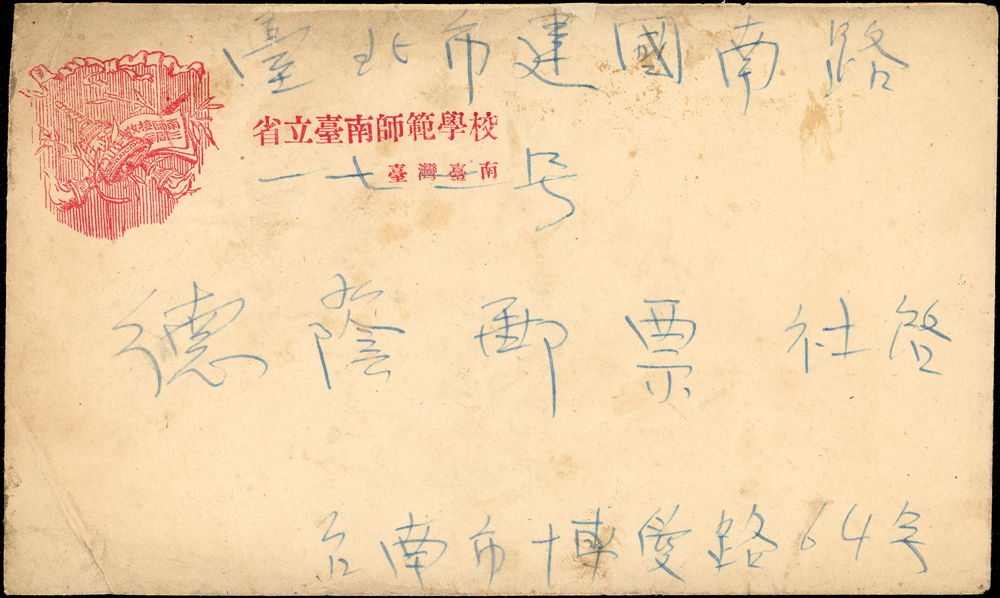 臺北市建國南路
省立臺南師範學校
臺灣臺南
一七二号
德蔭郵票社啓
台南市博愛路64号